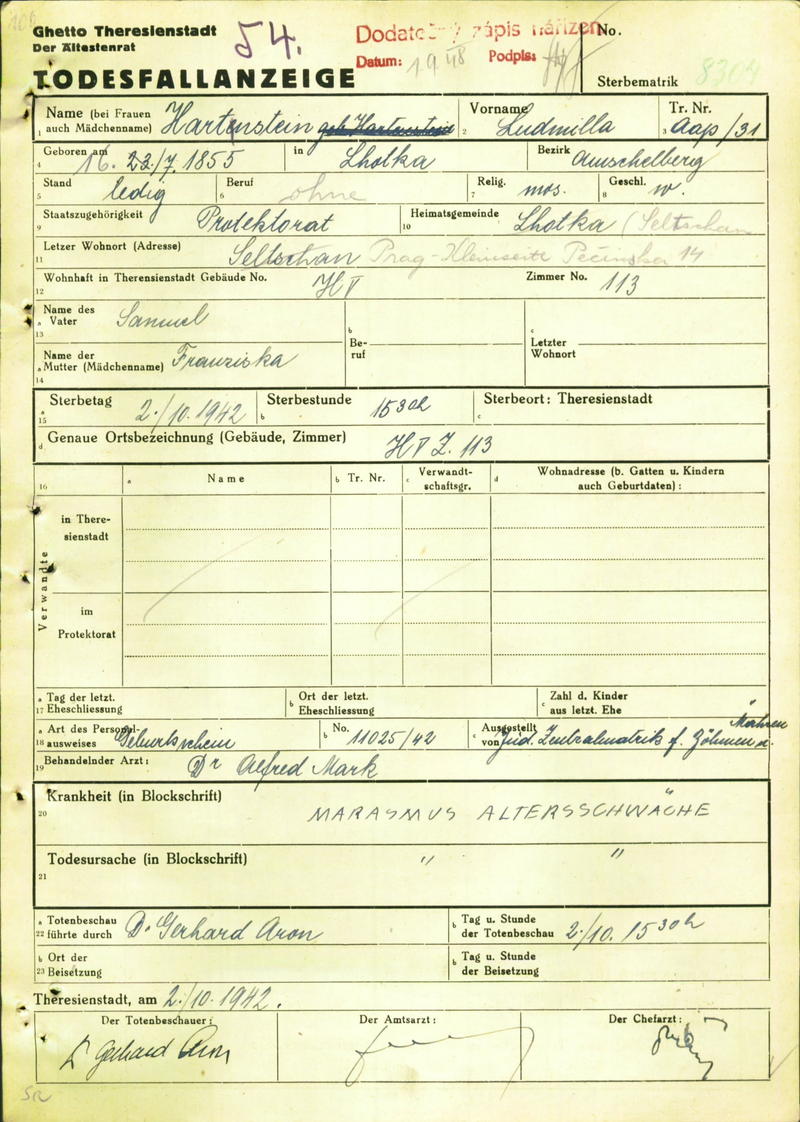 Ghetto Theresienstadt
Der Ältestenrat
54.
Dodatečný zápis nařízen
Datum: 19 48 Podpis:
No.
TODESFALLANZEIGE
Sterbematrik 8304
1 Name (bei Frauen auch Mädchenname) Hartenstein geb. Hartenstein 2 Vorname Ludmilla 3 Tr. Nr. Aap/31
4 Geboren am 16. 22/7. 1855 in Lhotka Bezirk Amschelberg
5 Stand ledig 6 Beruf ohne 7 Relig. mos. 8 Geschl. w.
9 Staatszugehörigkeit Protektorat 10 Heimatsgemeinde Lhotka (Seltschan
11 Letzer Wohnort (Adresse) Seltschan Prag-Kleinseite 14
12 Wohnhaft in Therensienstadt Gebäude No. H V Zimmer No. 113
13 a Name des Vater Samuel b Beruf c Letzter Wohnort
14 a Name der Mutter (Mädchenname) Franziska
15 a Sterbetag 2./10. 1942 b Sterbestunde 15 30 h c Sterbeort: Theresienstadt
d Genaue Ortsbezeichnung (Gebäude, Zimmer) H V Z. 113
16 a Name b Tr. Nr. c Verwandtschaftsgr. d Wohnadresse (b. Gatten u. Kindern auch Geburtdaten):
Verwandte
in Theresienstadt
im Protektorat
17 a Tag der letzt. Eheschliessung b Ort der letzt. Eheschliessung c Zahl d. Kinder aus letzt. Ehe
18 a Art des Personalausweises Geburtsschein b No. 11025/42 c Ausgestellt von Jüd. Zentralmatrik f. Böhmen u. Mähren
19 Behandelnder Arzt: Dr Alfred Mark
20 Krankheit (in Blockschrift) MARASMUS ALTERSSCHWÄCHE
21 Todesursache (in Blockschrift) " "
22 a Totenbeschau führte durch Dr Gerhard Aron b Tag u. Stunde der Totenbeschau 2./10. 15 30 h
23 b Ort der Beisetzung b Tag u. Stunde der Beisetzung
Theresienstadt, am 2./10. 1942.
Der Totenbeschauer: Der Amtsarzt: Der Chefarzt:
Dr Gerhard Aron